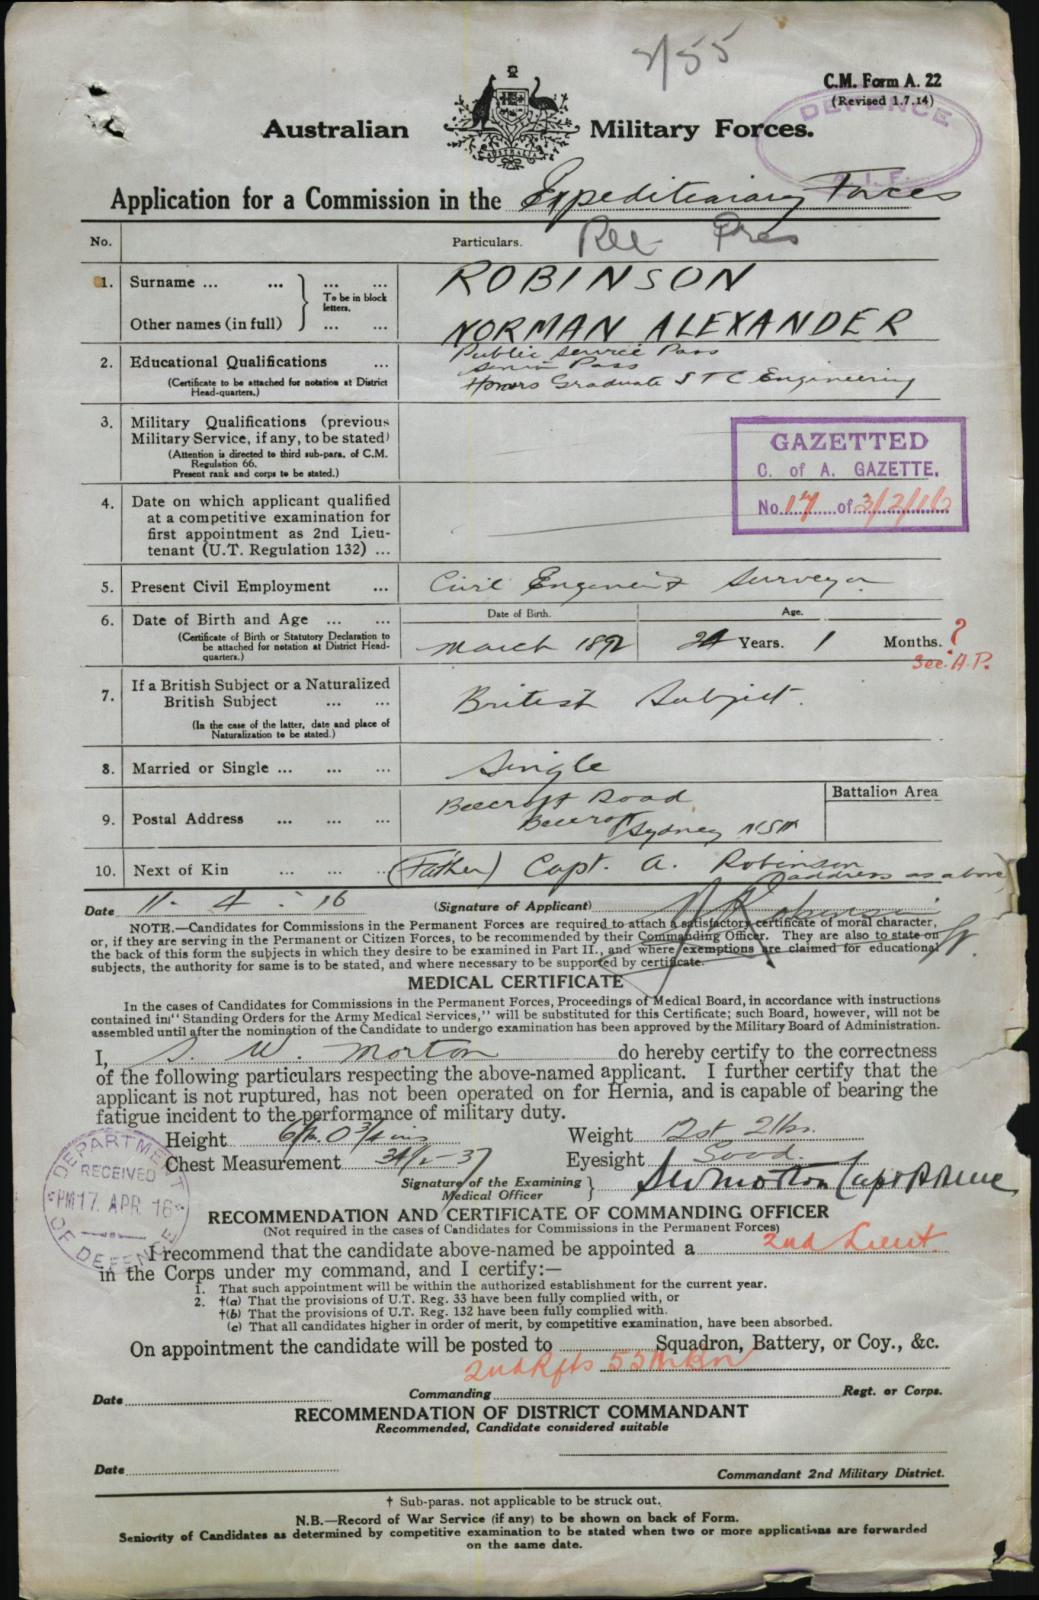 2/55
C.M. Form A. 22
(Revised 1.7.14)
DEFENCE
A.I.F.
Australian Military Forces.
AUSTRALIA
Application for a Commission in the Expeditionary Forces
No. Particulars.
1. Surname ... ... ... ... ROBINSON
To be in block letters.
Other names (in full) ... ... NORMAN ALEXANDER
2. Educational Qualifications ... Public Service Pass
Senior Pass
(Certificate to be attached for notation at District Head-quarters.) Honors Graduate S T C Engineering
3. Military Qualifications (previous
Military Service, if any, to be stated)
(Attention is directed to third sub-para. of C.M.
Regulation 66.
Present rank and corps to be stated.)
GAZETTED
C. of A. GAZETTE.
No. 17 of 3/2/16
4. Date on which applicant qualified
at a competitive examination for
first appointment as 2nd Lieu-
tenant (U.T. Regulation 132) ...
5. Present Civil Employment ... Civil Engineer & Surveyor
6. Date of Birth and Age ... ... Date of Birth. Age.
(Certificate of Birth or Statutory Declaration to
be attached for notation at District Head-
quarters.)
March 1892 24 Years. 1 Months. ?
See A.P.
7. If a British Subject or a Naturalized
British Subject ... ... British Subject.
(In the case of the latter, date and place of
Naturalization to be stated.)
8. Married or Single ... ... ... Single
9. Postal Address ... ... ... Beecroft Road
Beecroft Sydney NSW
Battalion Area
10. Next of Kin ... ... ... (Father) Capt. A. Robinson
address as above)
Date 11. 4. 16 (Signature of Applicant) Robinson
NOTE.—Candidates for Commissions in the Permanent Forces are required to attach a satisfactory certificate of moral character,
or, if they are serving in the Permanent or Citizen Forces, to be recommended by their Commanding Officer. They are also to state on
the back of this form the subjects in which they desire to be examined in Part II., and where exemptions are claimed for educational
subjects, the authority for same is to be stated, and where necessary to be supported by certificate.
MEDICAL CERTIFICATE
In the cases of Candidates for Commissions in the Permanent Forces, Proceedings of Medical Board, in accordance with instructions
contained in "Standing Orders for the Army Medical Services," will be substituted for this Certificate; such Board, however, will not be
assembled until after the nomination of the Candidate to undergo examination has been approved by the Military Board of Administration.
I, S. W. Morton do hereby certify to the correctness
of the following particulars respecting the above-named applicant. I further certify that the
applicant is not ruptured, has not been operated on for Hernia, and is capable of bearing the
fatigue incident to the performance of military duty.
Height 6ft. 0 3/4 ins Weight 12st 2lbs.
Chest Measurement 34½-37 Eyesight Good.
Signature of the Examining
Medical Officer } SW Morton Capt
DEPARTMENT OF DEFENCE
RECEIVED
PM 17 APR 16
RECOMMENDATION AND CERTIFICATE OF COMMANDING OFFICER
(Not required in the cases of Candidates for Commissions in the Permanent Forces)
I recommend that the candidate above-named be appointed a 2nd Lieut.
in the Corps under my command, and I certify:—
1. That such appointment will be within the authorized establishment for the current year.
2. †(a) That the provisions of U.T. Reg. 33 have been fully complied with, or
†(b) That the provisions of U.T. Reg. 132 have been fully complied with.
(c) That all candidates higher in order of merit, by competitive examination, have been absorbed.
On appointment the candidate will be posted to Squadron, Battery, or Coy., &c.
2nd Rfts 55th Bn
Date Commanding Regt. or Corps.
RECOMMENDATION OF DISTRICT COMMANDANT
Recommended, Candidate considered suitable
Date Commandant 2nd Military District.
† Sub-paras. not applicable to be struck out.
N.B.—Record of War Service (if any) to be shown on back of Form.
Seniority of Candidates as determined by competitive examination to be stated when two or more applications are forwarded
on the same date.